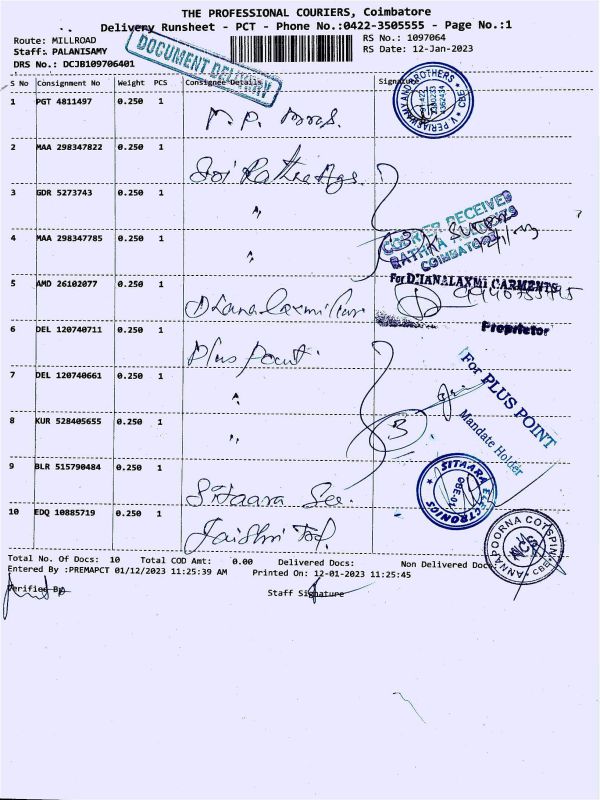 THE PROFESSIONAL COURIERS, Coimbatore
Delivery Runsheet - PCT - Phone No.:0422-3505555 - Page No.:1
Route: MILLROAD
RS No.: 1097064
Staff: PALANISAMY
RS Date: 12-Jan-2023
DRS No.: DCJB109706401
DOCUMENT DELIVERY
S No Consignment No Weight PCS Consignee Details Signature
1 PGT 4811497 0.250 1
V. PERIASWAMY AND BROTHERS CBE
2 MAA 298347822 0.250 1 Sri Rathna Ags.
3 GDR 5273743 0.250 1 "
COURIER RECEIVED
COIMBATORE
4 MAA 298347785 0.250 1 "
5 AMD 26102077 0.250 1 Dhanalaxmi Gar
For DHANALAXMI GARMENTS
Proprietor
6 DEL 120740711 0.250 1 Plus Point.
7 DEL 120740661 0.250 1 "
For PLUS POINT
Mandate Holder
8 KUR 528405655 0.250 1 "
3
9 BLR 515790484 0.250 1 Sitaara See.
SITAARA ELECTRONICS
10 EDQ 10885719 0.250 1 Jaishri Tex.
ANNAPOORNA COTSPIN CBE
Total No. Of Docs: 10 Total COD Amt: 0.00 Delivered Docs: Non Delivered Docs
Entered By :PREMAPCT 01/12/2023 11:25:39 AM Printed On: 12-01-2023 11:25:45
Verified By
Staff Signature